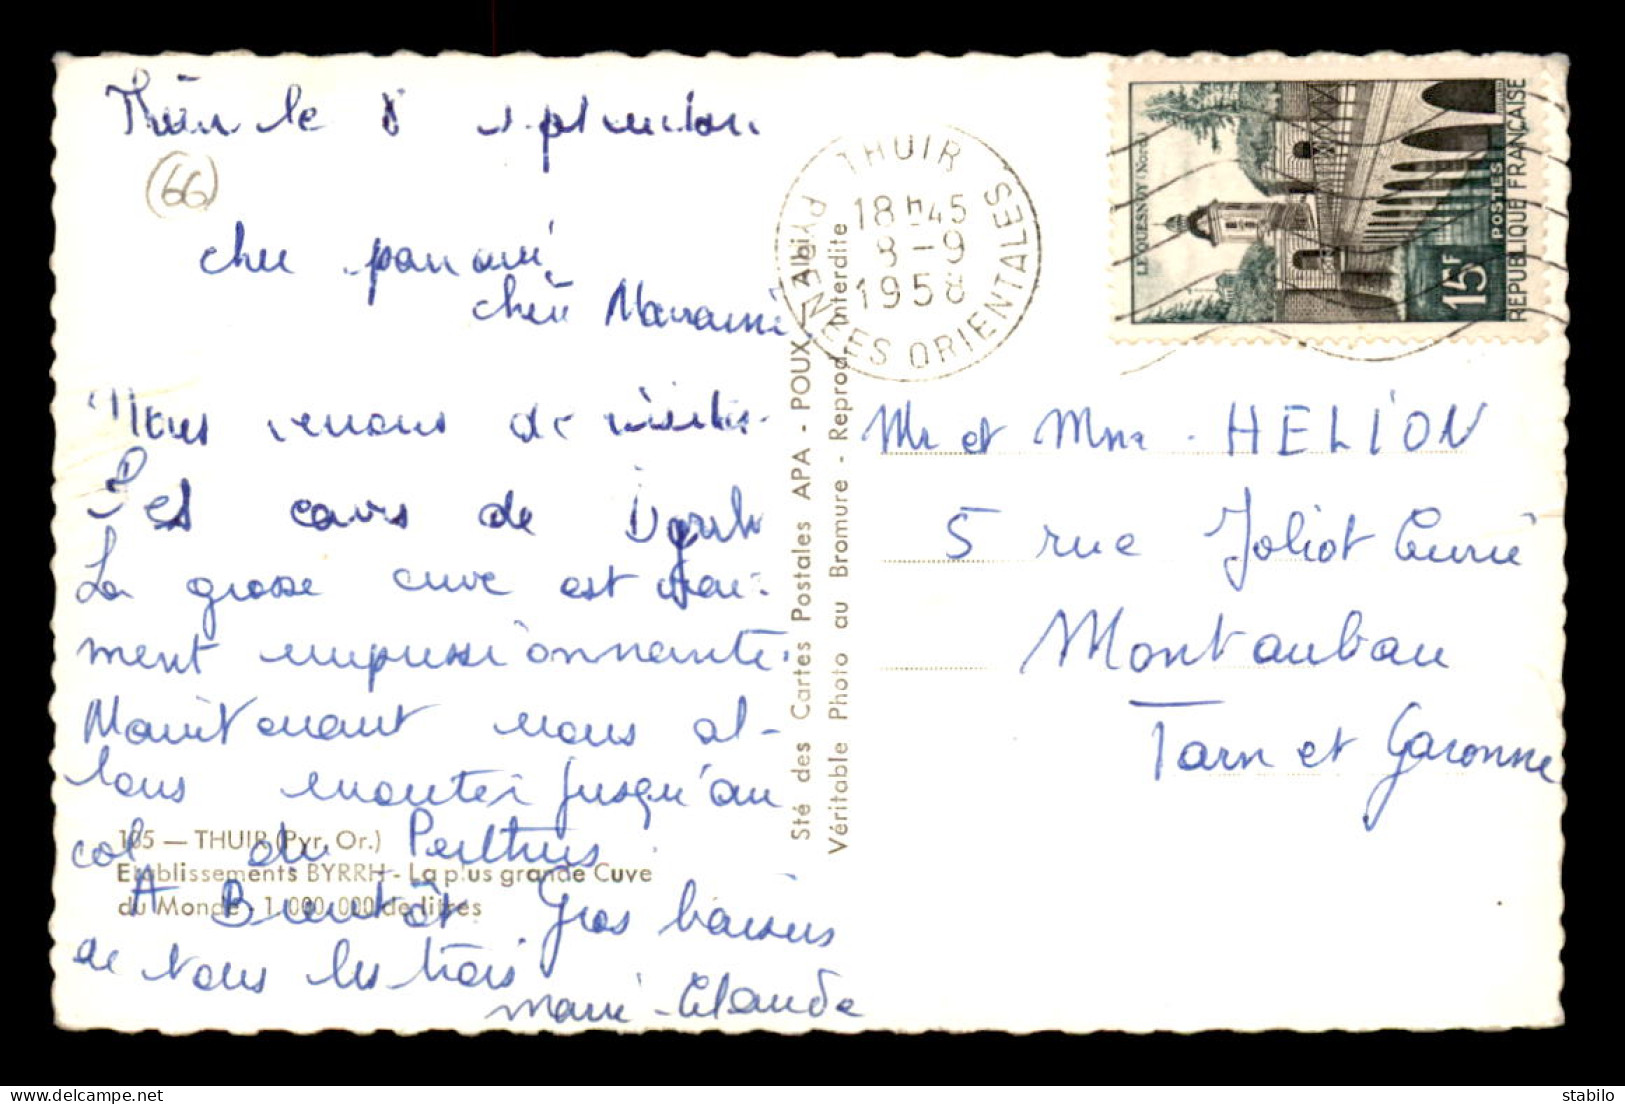 Thuir le 8 septembre
(66)
cher parrain,
chère Marraine
Nous venons de visiter
les caves de Byrrh
La grosse cuve est vrai-
ment impressionnante.
Maintenant nous al-
lons monter jusqu'au
col du Perthus
A Bientôt Gros baisers
de Nous les trois
Marie-Claude
105 — THUIR (Pyr. Or.)
Etablissements BYRRH - La plus grande Cuve
du Monde - 1.000.000 de litres
Sté des Cartes Postales APA - POUX — Albi
Véritable Photo au Bromure - Reprod. interdite
THUIR
18H45
8-9
1958
PYRENEES ORIENTALES
LE QUESNOY (Nord)
15F
POSTES
REPUBLIQUE FRANÇAISE
Mr et Mme. HELION
5 rue Joliot Curie
Montauban
Tarn et Garonne
the stabilo store